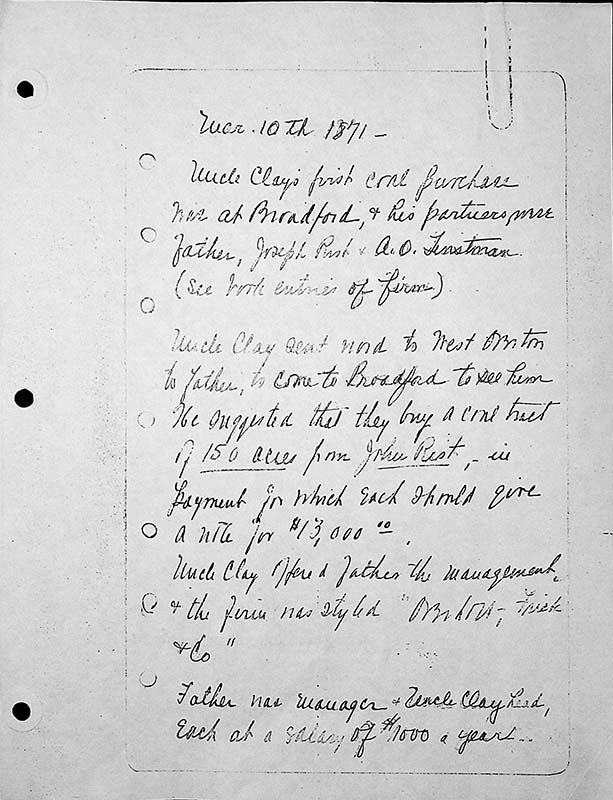 Mar. 10th 1871 -
Uncle Clay's first coal purchase
was at Broadford, & his partners were
Father, Joseph Rist & A.O. Tinstman.
(See book entries of firm)
Uncle Clay sent word to West Overton
to Father, to come to Broadford to see him
He suggested that they buy a coal tract
of 150 acres from John Rist, - in
payment for which each should give
a note for $13,000 00.
Uncle Clay offered Father the management,
& the firm was styled "Overholt, Frick
& Co"
Father was manager & Uncle Clay head,
Each at a salary of $1000 a year -